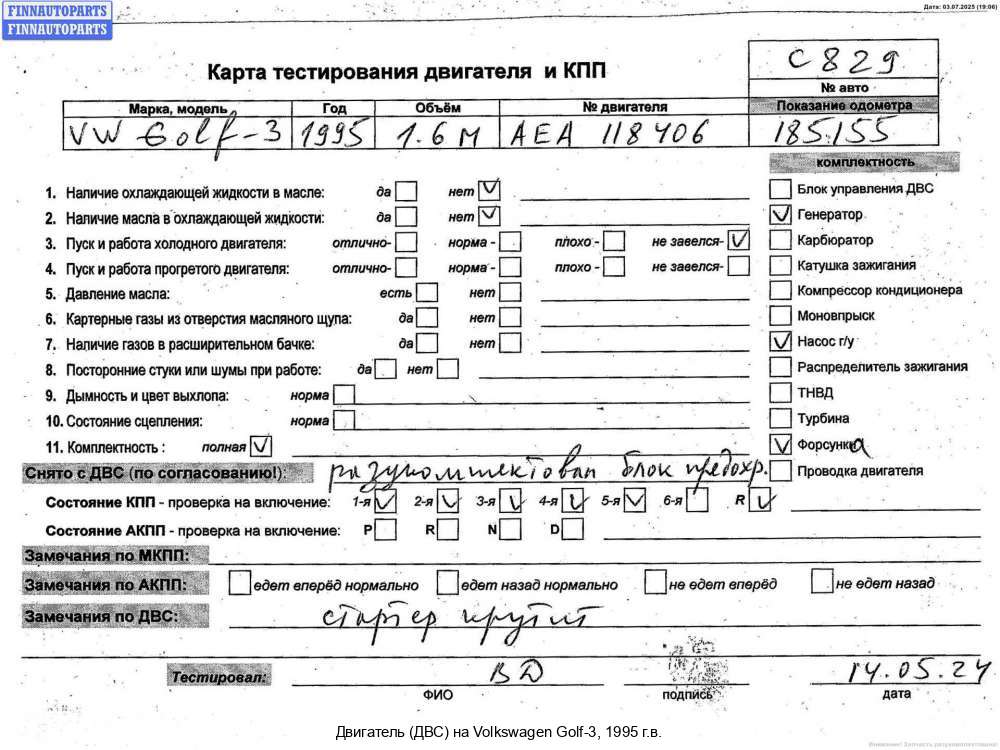 FINNAUTOPARTS
FINNAUTOPARTS
Дата: 03.07.2025 (19:06)
Карта тестирования двигателя и КПП
C829
№ авто
Марка, модель Год Объём № двигателя Показание одометра
VW Golf-3 1995 1.6 М AEA 118406 185.155
комплектность
1. Наличие охлаждающей жидкости в масле: да нет Блок управления ДВС
2. Наличие масла в охлаждающей жидкости: да нет Генератор
3. Пуск и работа холодного двигателя: отлично- норма - плохо - не завелся- Карбюратор
4. Пуск и работа прогретого двигателя: отлично- норма - плохо - не завелся- Катушка зажигания
5. Давление масла: есть нет Компрессор кондиционера
6. Картерные газы из отверстия масляного щупа: да нет Моновпрыск
7. Наличие газов в расширительном бачке: да нет Насос г/у
8. Посторонние стуки или шумы при работе: да нет Распределитель зажигания
9. Дымность и цвет выхлопа: норма ТНВД
10. Состояние сцепления: норма Турбина
11. Комплектность : полная Форсунка
Снято с ДВС (по согласованию!): разукомплектован блок предохр. Проводка двигателя
Состояние КПП - проверка на включение: 1-я 2-я 3-я 4-я 5-я 6-я R
Состояние АКПП - проверка на включение: P R N D
Замечания по МКПП:
Замечания по АКПП: едет вперёд нормально едет назад нормально не едет вперёд не едет назад
Замечания по ДВС: стартер крутит
Тестировал: ВД 14.05.24
ФИО подпись дата
Двигатель (ДВС) на Volkswagen Golf-3, 1995 г.в.
Внимание! Запчасть разукомплектована!